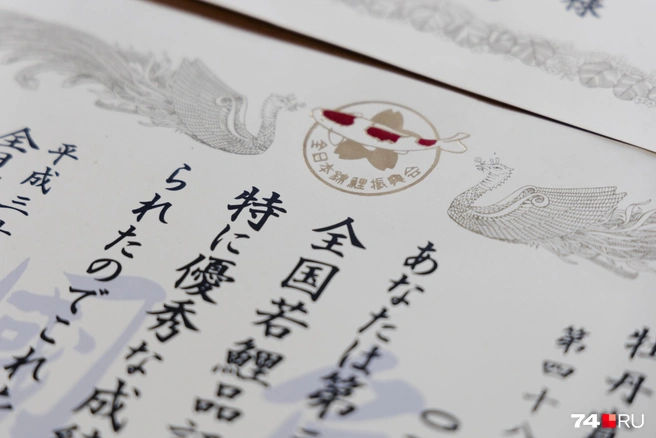 様
全日本錦鯉振興会
牡丹
第四十八
あなたは第
全国若鯉品評
特に優秀な成績
られたのでこれを
平成三十
全日本
74.RU